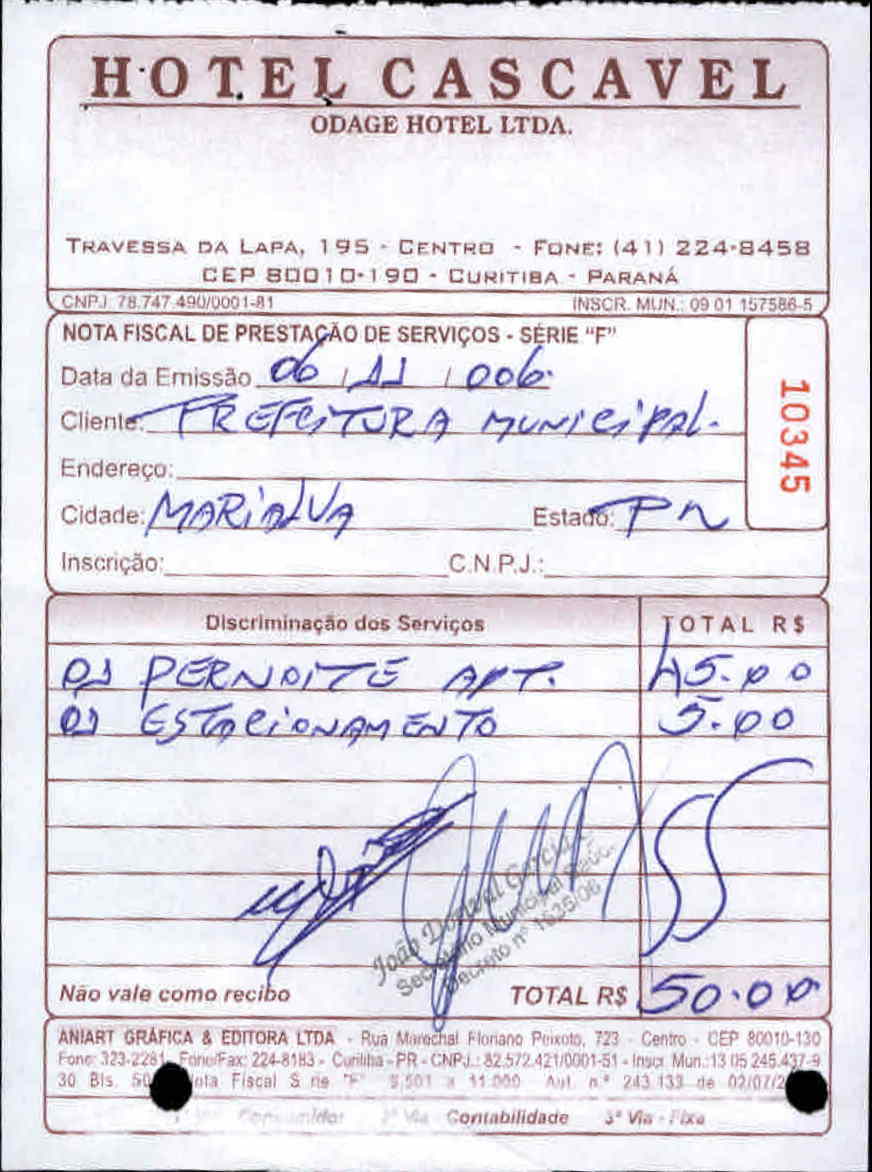 HOTEL CASCAVEL
ODAGE HOTEL LTDA.
TRAVESSA DA LAPA, 195 - CENTRO - FONE: (41) 224-8458
CEP 80010-190 - CURITIBA - PARANÁ
CNPJ. 78.747.490/0001-81 INSCR. MUN.: 09 01 157586-5
NOTA FISCAL DE PRESTAÇÃO DE SERVIÇOS - SÉRIE "F"
Data da Emissão 06 / 11 / 006.
Cliente: PREFEITURA MUNICIPAL.
Endereço:
Cidade: MARIALVA Estado: PR
Inscrição: C.N.P.J.:
10345
Discriminação dos Serviços TOTAL R$
01 PERNOITE APT. 45.00
01 ESTACIONAMENTO 5.00
João Dorival Garcia
Secretário Municipal
Decreto nº 1525/06
Não vale como recibo TOTAL R$ 50.00
ANIART GRÁFICA & EDITORA LTDA - Rua Marechal Floriano Peixoto, 723 - Centro - CEP 80010-130
Fone: 323-2281 Fone/Fax: 224-8183 - Curitiba - PR - CNPJ.: 82.572.421/0001-51 - Inscr. Mun.:13 05 245.437-9
30 Bls. 50 Nota Fiscal S rie "F" 9.501 a 11.000 Aut. n.º 243.133 de 02/07/2
Consumidor 2ª Via Contabilidade 3ª Via - Fixa